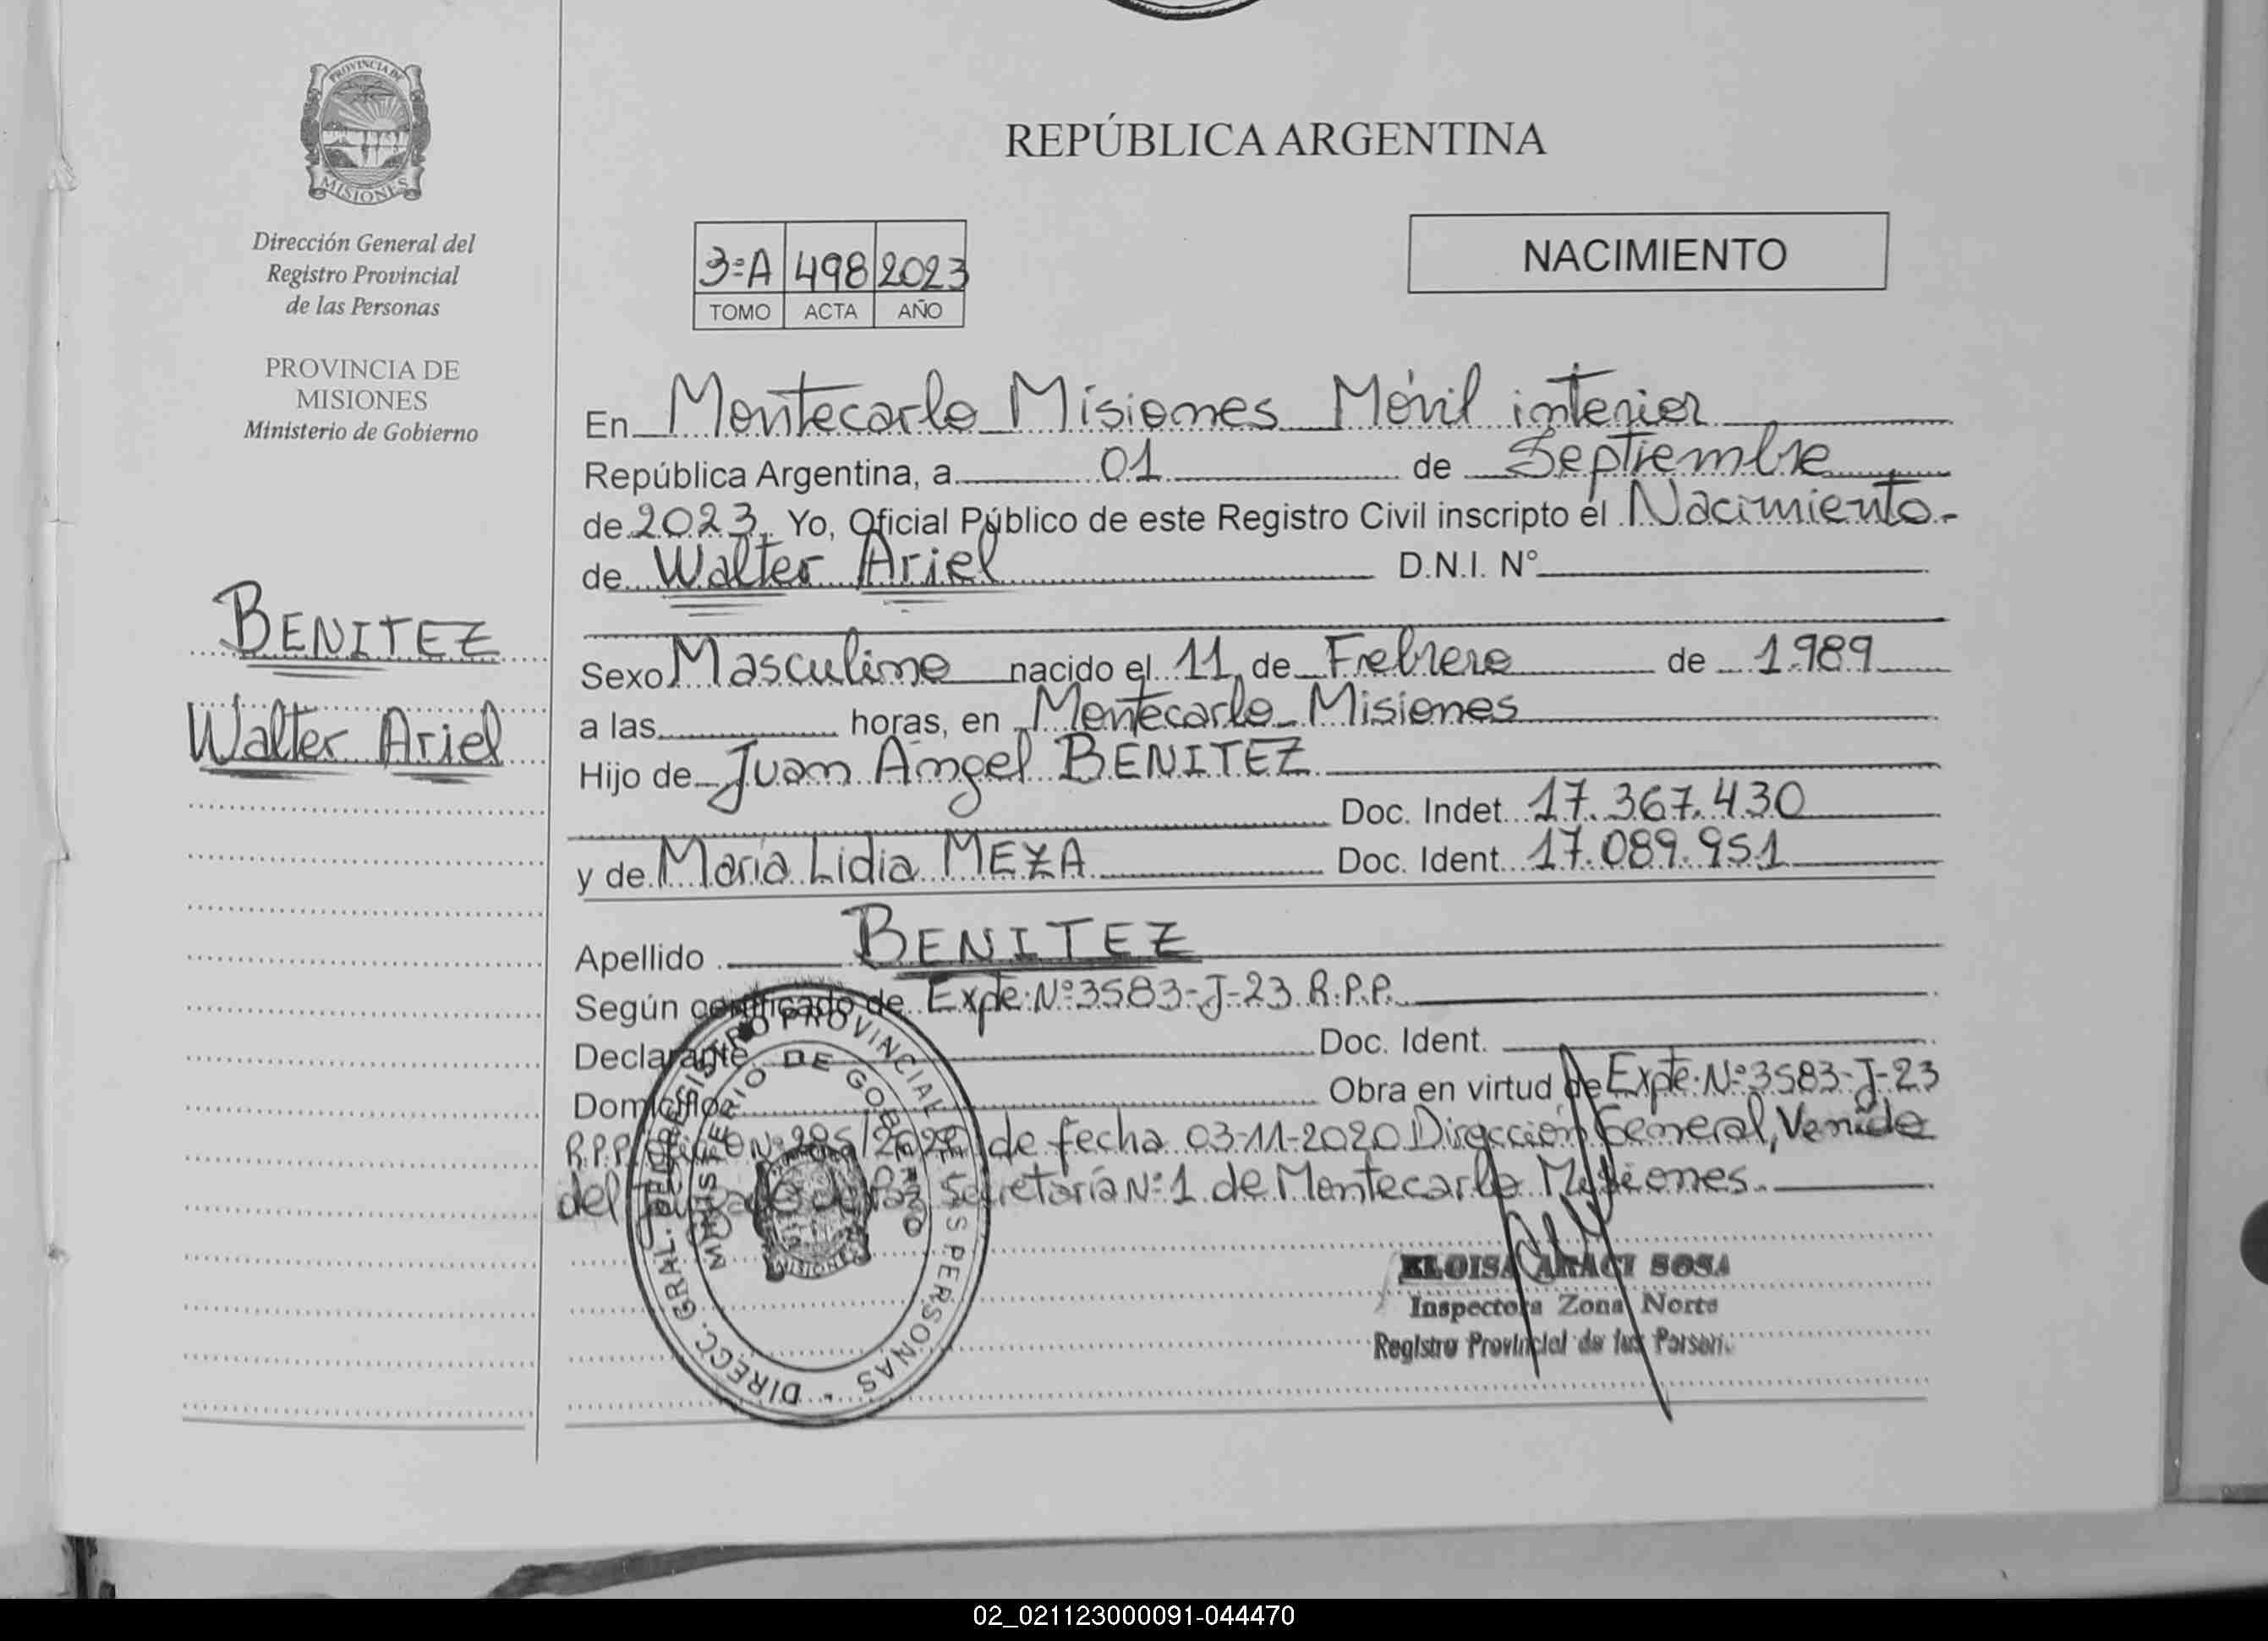 PROVINCIA DE
MISIONES
Dirección General del
Registro Provincial
de las Personas
PROVINCIA DE
MISIONES
Ministerio de Gobierno
BENITEZ
Walter Ariel
REPÚBLICA ARGENTINA
3=A 498 2023
TOMO ACTA AÑO
NACIMIENTO
En Montecarlo Misiones Móvil interior
República Argentina, a 01 de Septiembre
de 2023. Yo, Oficial Público de este Registro Civil inscripto el Nacimiento.-
de Walter Ariel D.N.I. N°
Sexo Masculino nacido el 11 de Febrero de 1.989
a las horas, en Montecarlo Misiones
Hijo de Juan Angel BENITEZ
Doc. Indet. 17.367.430
y de Maria Lidia MEZA Doc. Ident. 17.089.951
Apellido BENITEZ
Según certificado de Expte.Nº3583-J-23 R.P.P.
Declarante Doc. Ident.
Domicilio Obra en virtud de Expte.Nº3583-J-23
R.P.P. Nº de fecha 03-11-2020 Dirección General, Venido
del Juzgado de Paz Secretaría Nº1 de Montecarlo Misiones.
DIRECC. GRAL. DEL REGISTRO PROVINCIAL DE LAS PERSONAS
MINISTERIO DE GOBIERNO
MISIONES
ELOISA ARACI SOSA
Inspectora Zona Norte
Registro Provincial de las Person.
02_021123000091-044470